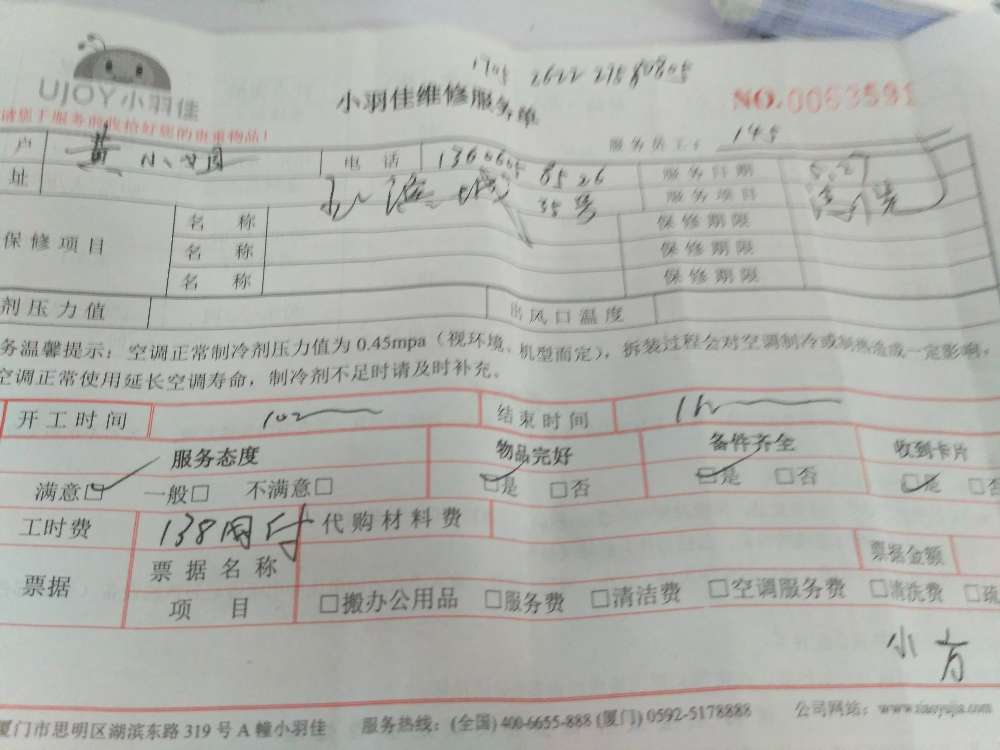 UJOY小羽佳
小羽佳维修服务单
NO.0063591
请您于服务前收拾好您的贵重物品!
服务员工号 145
户 黄小姐 电话 1360605 8526 服务日期 5.27
址 35号 服务项目
保修项目 名称 保修期限
名称 保修期限
名称 保修期限
剂压力值 出风口温度
务温馨提示:空调正常制冷剂压力值为0.45mpa(视环境、机型而定),拆装过程会对空调制冷或制热造成一定影响,
空调正常使用延长空调寿命,制冷剂不足时请及时补充。
开工时间 结束时间
服务态度 物品完好 备件齐全 收到卡片
满意□ 一般□ 不满意□ □是 □否 □是 □否 □是 □否
工时费 138网付 代购材料费
票据 票据名称 票据金额
项目 □搬办公用品 □服务费 □清洁费 □空调服务费 □清洗费 □疏
小方
厦门市思明区湖滨东路319号A幢小羽佳 服务热线:(全国)400-6655-888(厦门)0592-5178888 公司网站:www.xiaoyujia.com